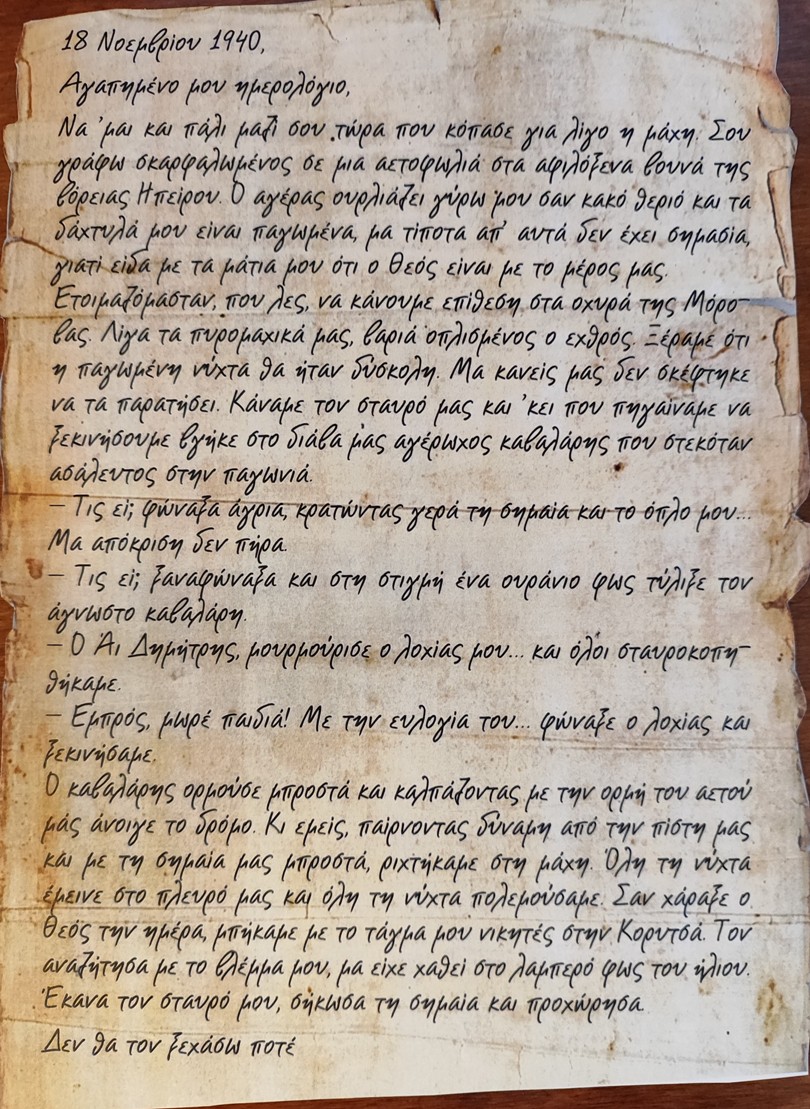 18 Νοεμβρίου 1940,
Αγαπημένο μου ημερολόγιο,
Να 'μαι και πάλι μαζί σου τώρα που κόπασε για λίγο η μάχη. Σου
γράφω σκαρφαλωμένος σε μια αετοφωλιά στα αφιλόξενα βουνά της
βόρειας Ηπείρου. Ο αγέρας ουρλιάζει γύρω μου σαν κακό θεριό και τα
δάχτυλά μου είναι παγωμένα, μα τίποτα απ' αυτά δεν έχει σημασία,
γιατί είδα με τα μάτια μου ότι ο Θεός είναι με το μέρος μας.
Ετοιμαζόμασταν, που λες, να κάνουμε επίθεση στα οχυρά της Μόρο-
βας. Λίγα τα πυρομαχικά μας, βαριά οπλισμένος ο εχθρός. Ξέραμε ότι
η παγωμένη νύχτα θα ήταν δύσκολη. Μα κανείς μας δεν σκέφτηκε
να τα παρατήσει. Κάναμε τον σταυρό μας και 'κει που πηγαίναμε να
ξεκινήσουμε βγήκε στο διάβα μας αγέρωχος καβαλάρης που στεκόταν
ασάλευτος στην παγωνιά.
– Τις ει; φώναξα άγρια, κρατώντας γερά τη σημαία και το όπλο μου...
Μα απόκριση δεν πήρα.
– Τις ει; ξαναφώναξα και στη στιγμή ένα ουράνιο φως τύλιξε τον
άγνωστο καβαλάρη.
– Ο Άι Δημήτρης, μουρμούρισε ο λοχίας μου... και όλοι σταυροκοπη-
θήκαμε.
– Εμπρός, μωρέ παιδιά! Με την ευλογία του... φώναξε ο λοχίας και
ξεκινήσαμε.
Ο καβαλάρης ορμούσε μπροστά και καλπάζοντας με την ορμή του αετού
μάς άνοιγε το δρόμο. Κι εμείς, παίρνοντας δύναμη από την πίστη μας
και με τη σημαία μας μπροστά, ριχτήκαμε στη μάχη. Όλη τη νύχτα
έμεινε στο πλευρό μας και όλη τη νύχτα πολεμούσαμε. Σαν χάραξε ο
Θεός την ημέρα, μπήκαμε με το τάγμα μου νικητές στην Κορυτσά. Τον
αναζήτησα με το βλέμμα μου, μα είχε χαθεί στο λαμπερό φως του ήλιου.
Έκανα τον σταυρό μου, σήκωσα τη σημαία και προχώρησα.
Δεν θα τον ξεχάσω ποτέ